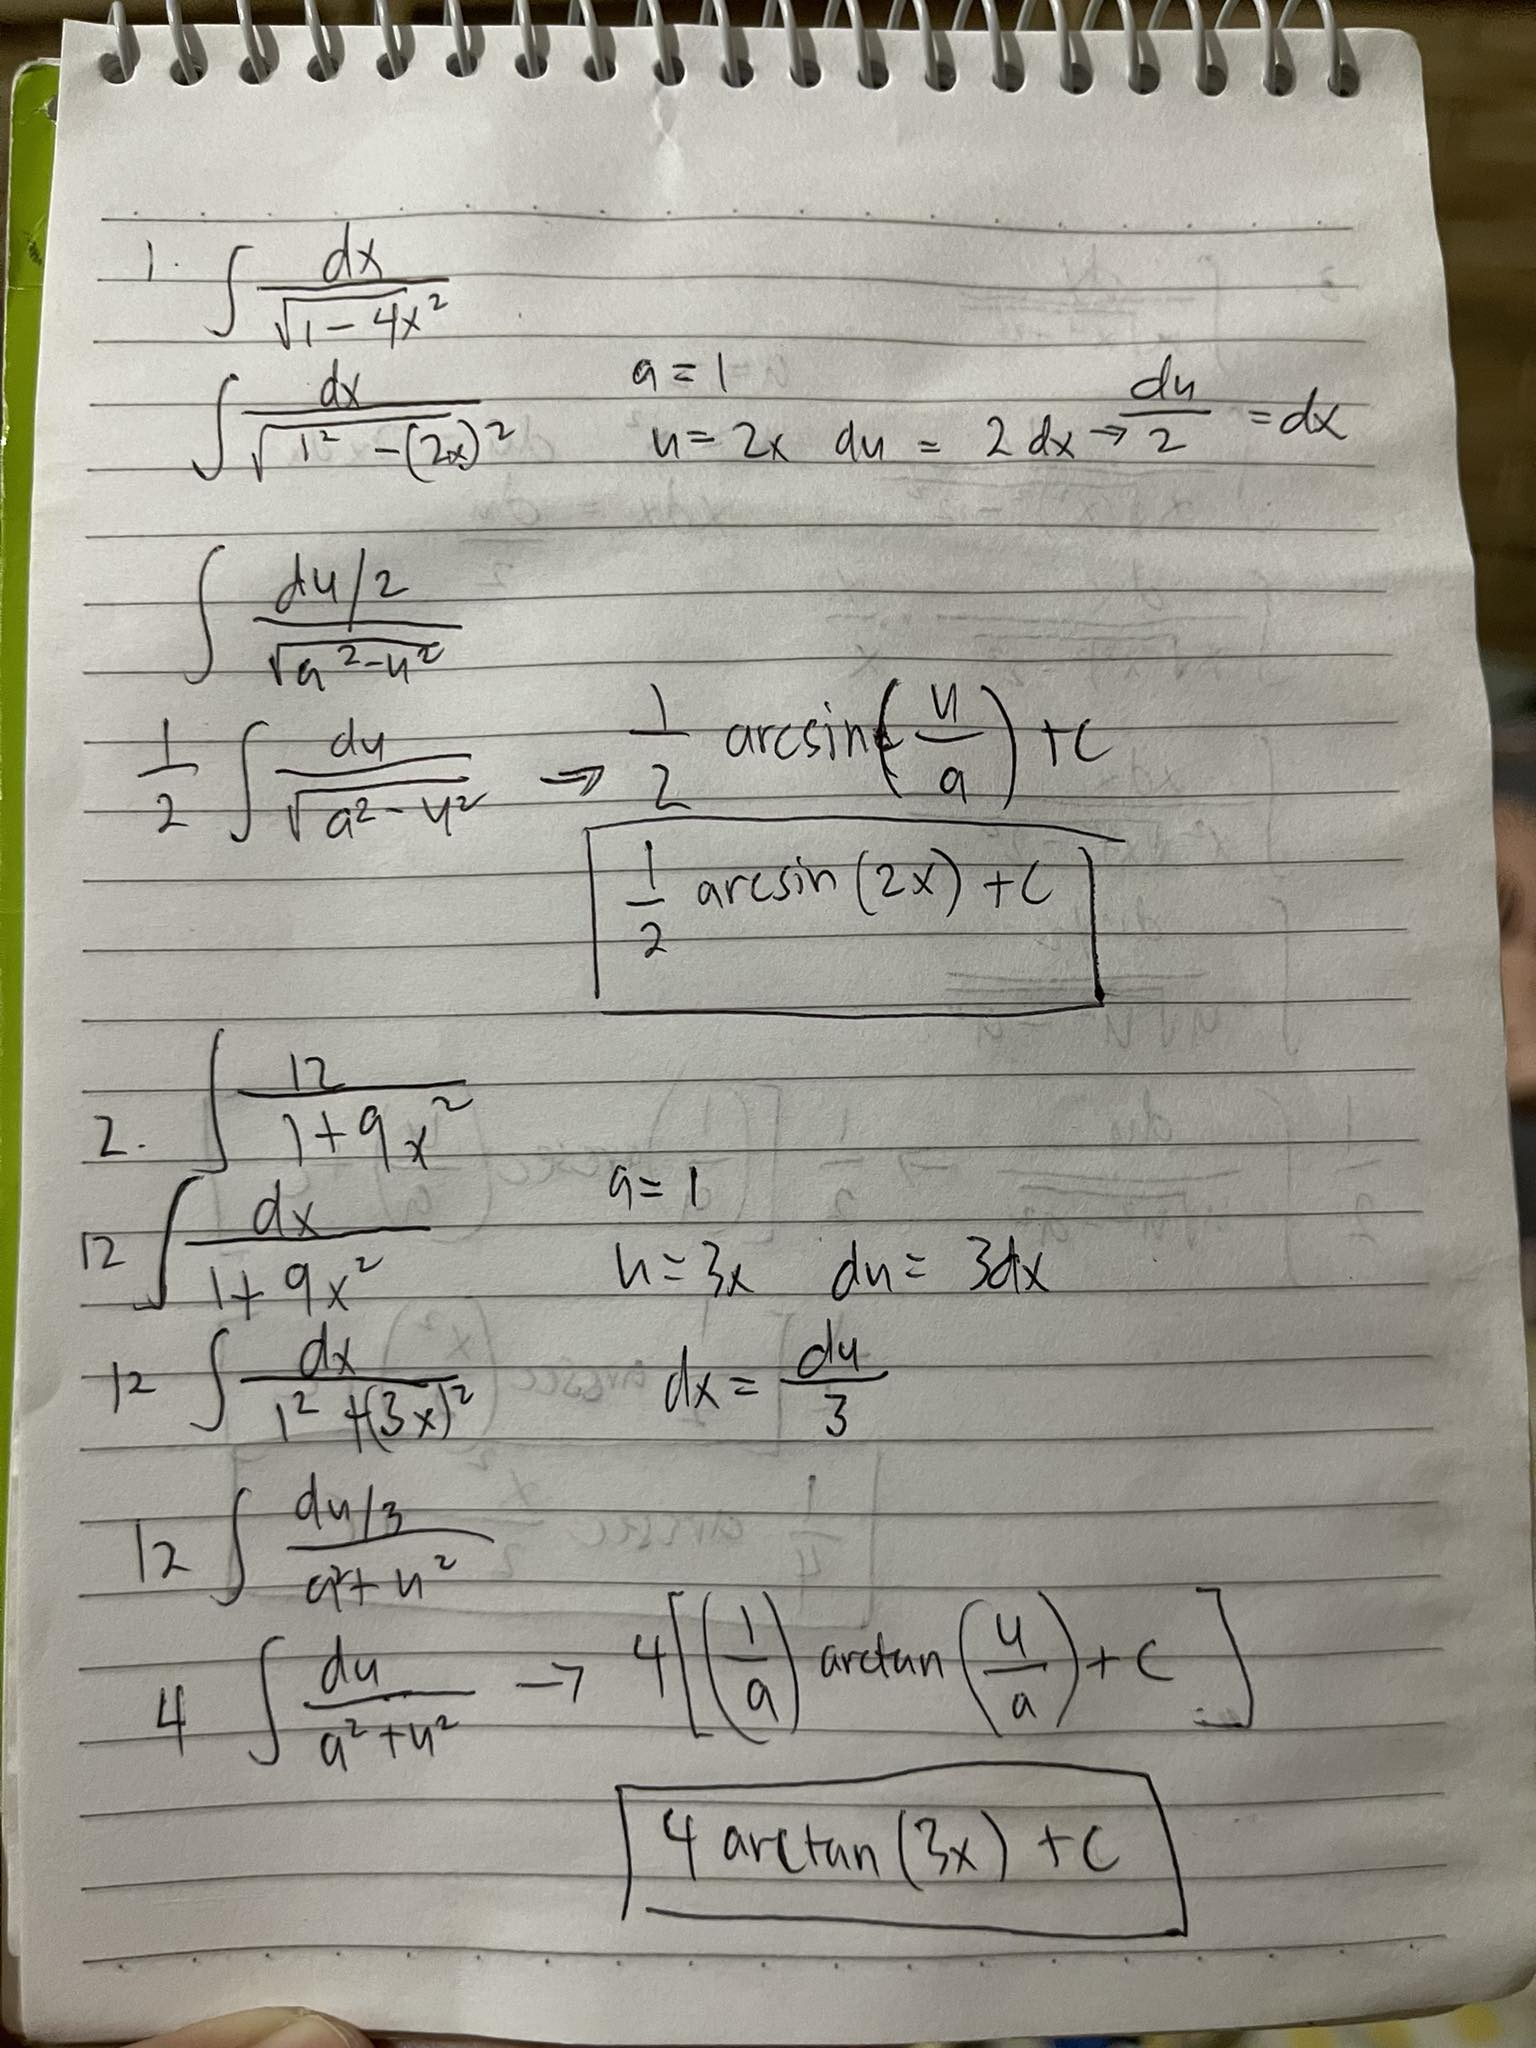 1. ∫ dx / √(1 - 4x²)
∫ dx / √(1² - (2x)²)   a = 1
u = 2x   du = 2 dx → du/2 = dx
∫ (du/2) / √(a² - u²)
1/2 ∫ du / √(a² - u²) ⇒ 1/2 arcsin(u/a) + C
1/2 arcsin (2x) + C
2. ∫ 12 / (1 + 9x²)
12 ∫ dx / (1 + 9x²)   a = 1
u = 3x   du = 3dx
12 ∫ dx / (1² + (3x)²)   dx = du/3
12 ∫ (du/3) / (a² + u²)
4 ∫ du / (a² + u²) → 4[(1/a) arctan(u/a) + C]
4 arctan (3x) + C